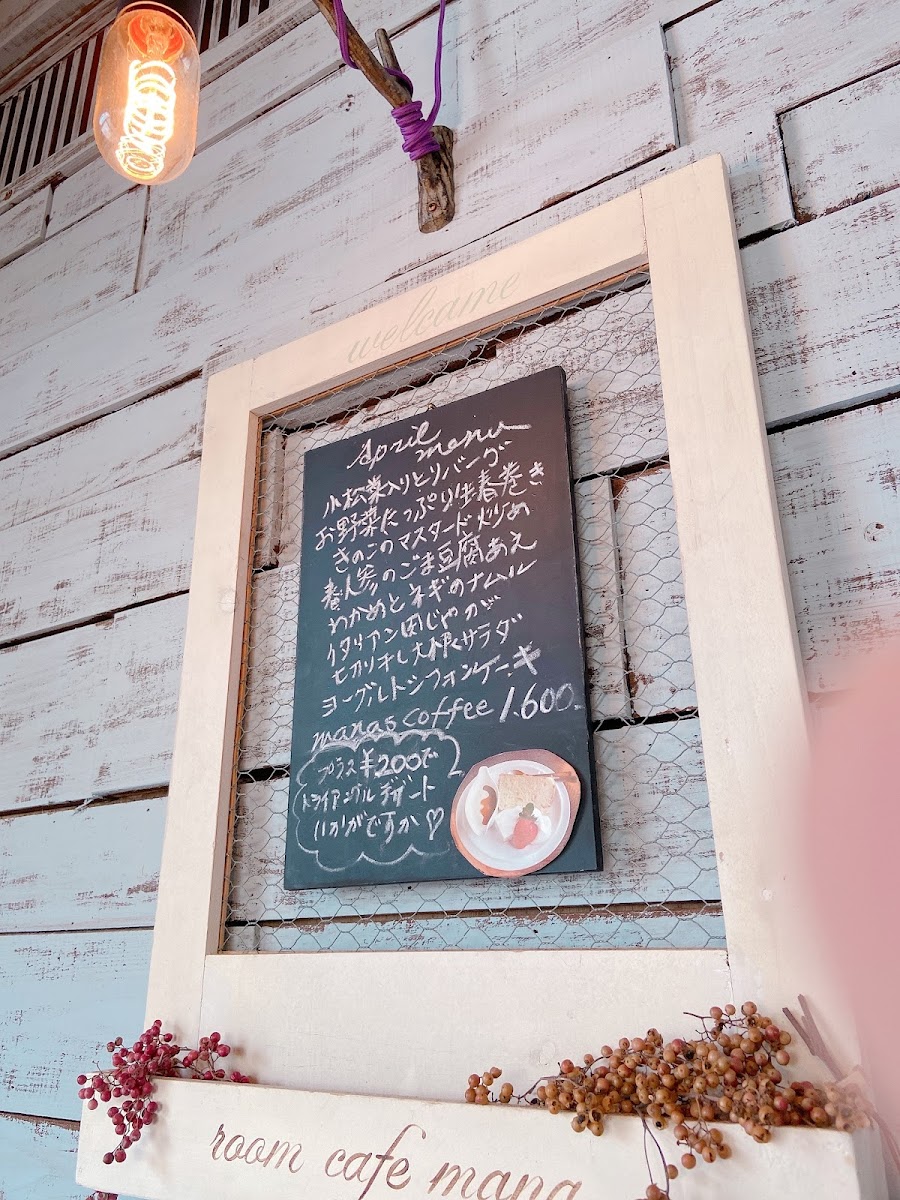 welcame
April menu
小松菜入りとりバーグ
お野菜たっぷり生春巻き
きのこのマスタード炒め
春人参のごま豆腐あえ
わかめとネギのナムル
イタリアン肉じゃが
七カリキし大根サラダ
ヨーグルトシフォンケーキ
manas coffee 1.600.
プラス¥200で
トライアングルデザート
いかがですか♡
room cafe mana